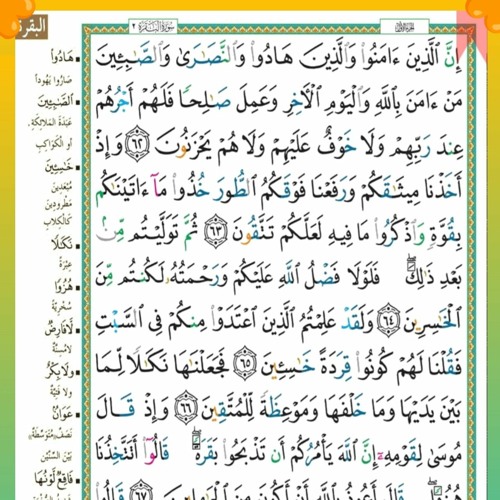 سورة البقرة ٢
البقرة
إِنَّ ٱلَّذِينَ ءَامَنُوا۟ وَٱلَّذِينَ هَادُوا۟ وَٱلنَّصَـٰرَىٰ وَٱلصَّـٰبِـِٔينَ
مَنْ ءَامَنَ بِٱللَّهِ وَٱلْيَوْمِ ٱلْـَٔاخِرِ وَعَمِلَ صَـٰلِحًا فَلَهُمْ أَجْرُهُمْ
عِندَ رَبِّهِمْ وَلَا خَوْفٌ عَلَيْهِمْ وَلَا هُمْ يَحْزَنُونَ ٦٢ وَإِذْ
أَخَذْنَا مِيثَـٰقَكُمْ وَرَفَعْنَا فَوْقَكُمُ ٱلطُّورَ خُذُوا۟ مَآ ءَاتَيْنَـٰكُم
بِقُوَّةٍ وَٱذْكُرُوا۟ مَا فِيهِ لَعَلَّكُمْ تَتَّقُونَ ٦٣ ثُمَّ تَوَلَّيْتُم مِّنۢ
بَعْدِ ذَٰلِكَ ۖ فَلَوْلَا فَضْلُ ٱللَّهِ عَلَيْكُمْ وَرَحْمَتُهُۥ لَكُنتُم مِّنَ
ٱلْخَـٰسِرِينَ ٦٤ وَلَقَدْ عَلِمْتُمُ ٱلَّذِينَ ٱعْتَدَوْا۟ مِنكُمْ فِى ٱلسَّبْتِ
فَقُلْنَا لَهُمْ كُونُوا۟ قِرَدَةً خَـٰسِـِٔينَ ٦٥ فَجَعَلْنَـٰهَا نَكَـٰلًا لِّمَا
بَيْنَ يَدَيْهَا وَمَا خَلْفَهَا وَمَوْعِظَةً لِّلْمُتَّقِينَ ٦٦ وَإِذْ قَالَ
مُوسَىٰ لِقَوْمِهِۦٓ إِنَّ ٱللَّهَ يَأْمُرُكُمْ أَن تَذْبَحُوا۟ بَقَرَةً ۖ قَالُوٓا۟ أَتَتَّخِذُنَا
هُزُوًا ۖ قَالَ أَعُوذُ بِٱللَّهِ أَنْ أَكُونَ مِنَ ٱلْجَـٰهِلِينَ ٦٧ قَالُوا۟
هَادُوا
صاروا يهوداً
الصَّابِئِينَ
عبدة الملائكة
أو الكواكب
خَاسِئِينَ
مُبعدين
مطرودين
كالكلاب
نَكَالًا
عبرة
هُزُوًا
سُخرية
لَا فَارِضٌ
لا مُسنة
وَلَا بِكْرٌ
ولا فتيّة
عَوَانٌ
نَصَف «متوسطة»
بين السِّنَّين
فَاقِعٌ لَوْنُهَا